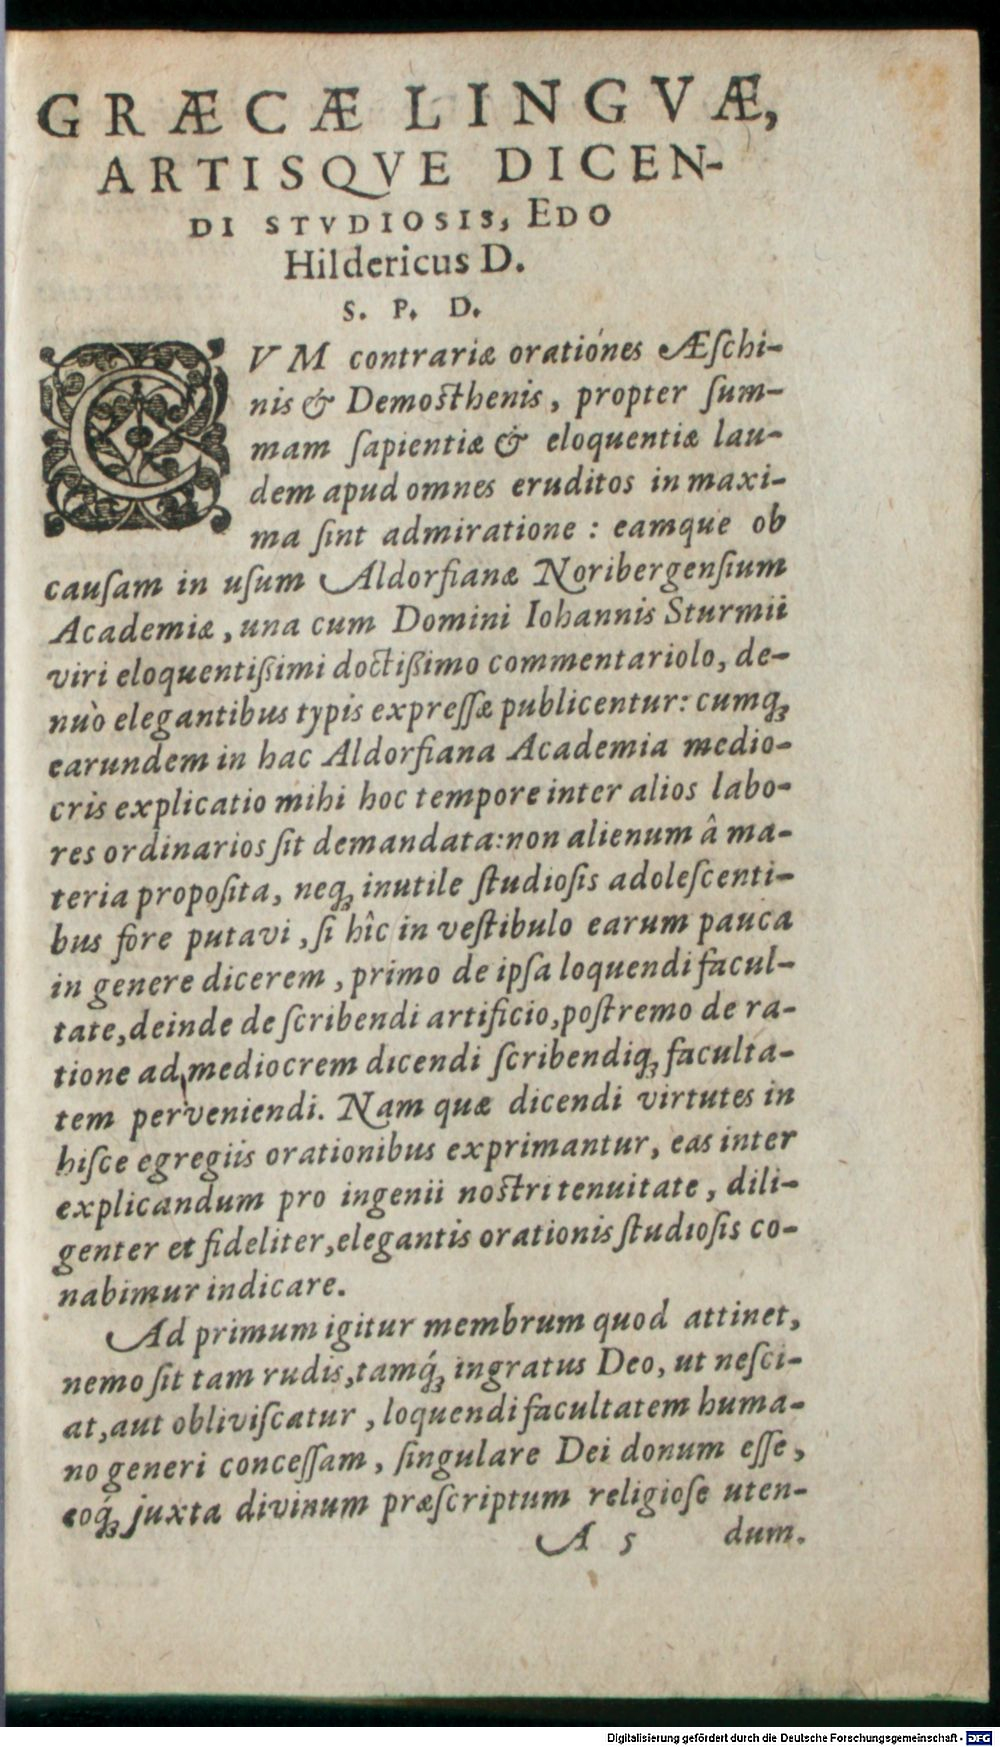 GRÆCÆ LINGVÆ,
ARTISQVE DICEN-
DI STVDIOSIS, EDO
Hildericus D.
S. P. D.
CVM contrariæ oratiónes Æſchi-
nis & Demoſthenis, propter ſum-
mam ſapientiæ & eloquentiæ lau-
dem apud omnes eruditos in maxi-
ma ſint admiratione : eamque ob
cauſam in uſum Aldorfianæ Noribergenſium
Academiæ, una cum Domini Iohannis Sturmii
viri eloquentiſſimi doctiſſimo commentariolo, de-
nuò elegantibus typis expreſſæ publicentur: cumqꝫ
earundem in hac Aldorfiana Academia medio-
cris explicatio mihi hoc tempore inter alios labo-
res ordinarios ſit demandata: non alienum â ma-
teria propoſita, neqꝫ inutile ſtudioſis adoleſcenti-
bus fore putavi, ſi hîc in veſtibulo earum pauca
in genere dicerem, primo de ipſa loquendi facul-
tate, deinde de ſcribendi artificio, poſtremo de ra-
tione ad mediocrem dicendi ſcribendiqꝫ faculta-
tem perveniendi. Nam quæ dicendi virtutes in
hiſce egregiis orationibus exprimantur, eas inter
explicandum pro ingenii noſtri tenuitate, dili-
genter et fideliter, elegantis orationis ſtudioſis co-
nabimur indicare.
Ad primum igitur membrum quod attinet,
nemo ſit tam rudis, tamq́ꝫ ingratus Deo, ut neſci-
at, aut obliviſcatur, loquendi facultatem huma-
no generi conceſſam, ſingulare Dei donum eſſe,
eoq́ꝫ juxta divinum præſcriptum religioſe uten-
A 5 dum.
Digitalisierung gefördert durch die Deutsche Forschungsgemeinschaft - DFG